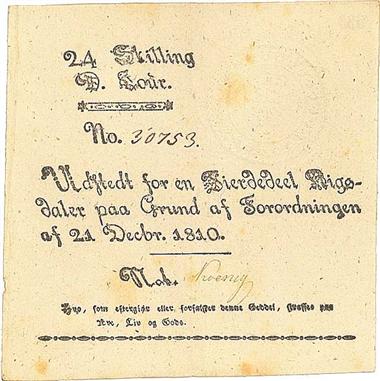 24 Skilling
D. Cour.
No. 30753.
Udstedt for en Fierdedeel Rigs-
daler paa Grund af Forordningen
af 21 Decbr. 1810.
Nob.
Hvo, som eftergiør eller forfalsker denne Seddel, straffes paa
Ære, Liv og Gods.